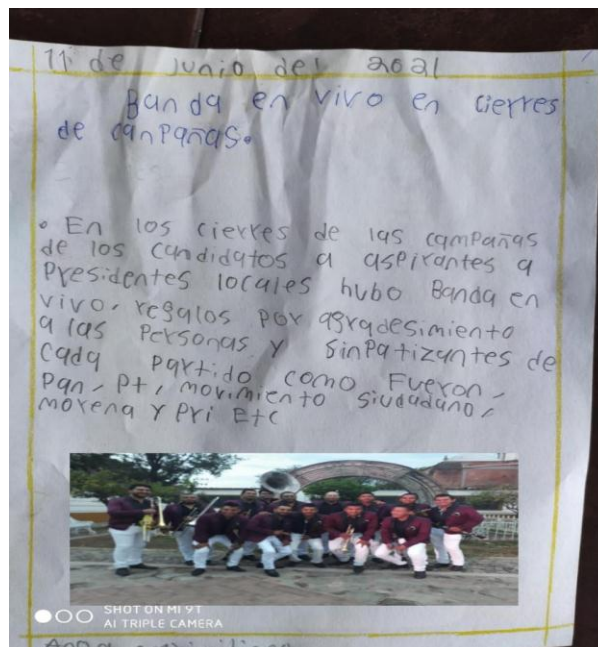 11 de Junio del 2021
Banda en vivo en cierres
de canpañas.
• En los cierres de las campañas
de los candidatos a aspirantes a
Presidentes locales hubo Banda en
vivo, regalos por agradesimiento
a las Personas y sinpatizantes de
cada partido como Fueron,
Pan, Pt, movimiento siudadano,
morena y pri Etc
SHOT ON MI 9T
AI TRIPLE CAMERA